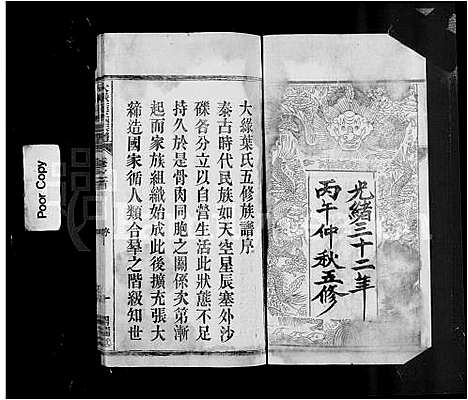 光緒三十二年
丙午仲秋五修
大綠葉氏五修族譜序
秦古時代民族如天空星辰塞外沙
礫各分立以自營生活此狀態不足
持久於是骨肉同胞之關係次第漸
起而家族組織始成此後擴充張大
締造國家循人類合羣之階級知世
序
Poor Copy